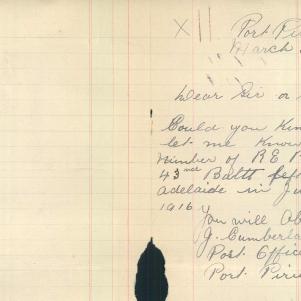 X
Port Pir
March
Dear Sir or
Could you Kin
let me Know
number of R E
43rd Battn
adelaide in Ju
1916
You will Ob
J. Cumberla
Post Office
Port Piri